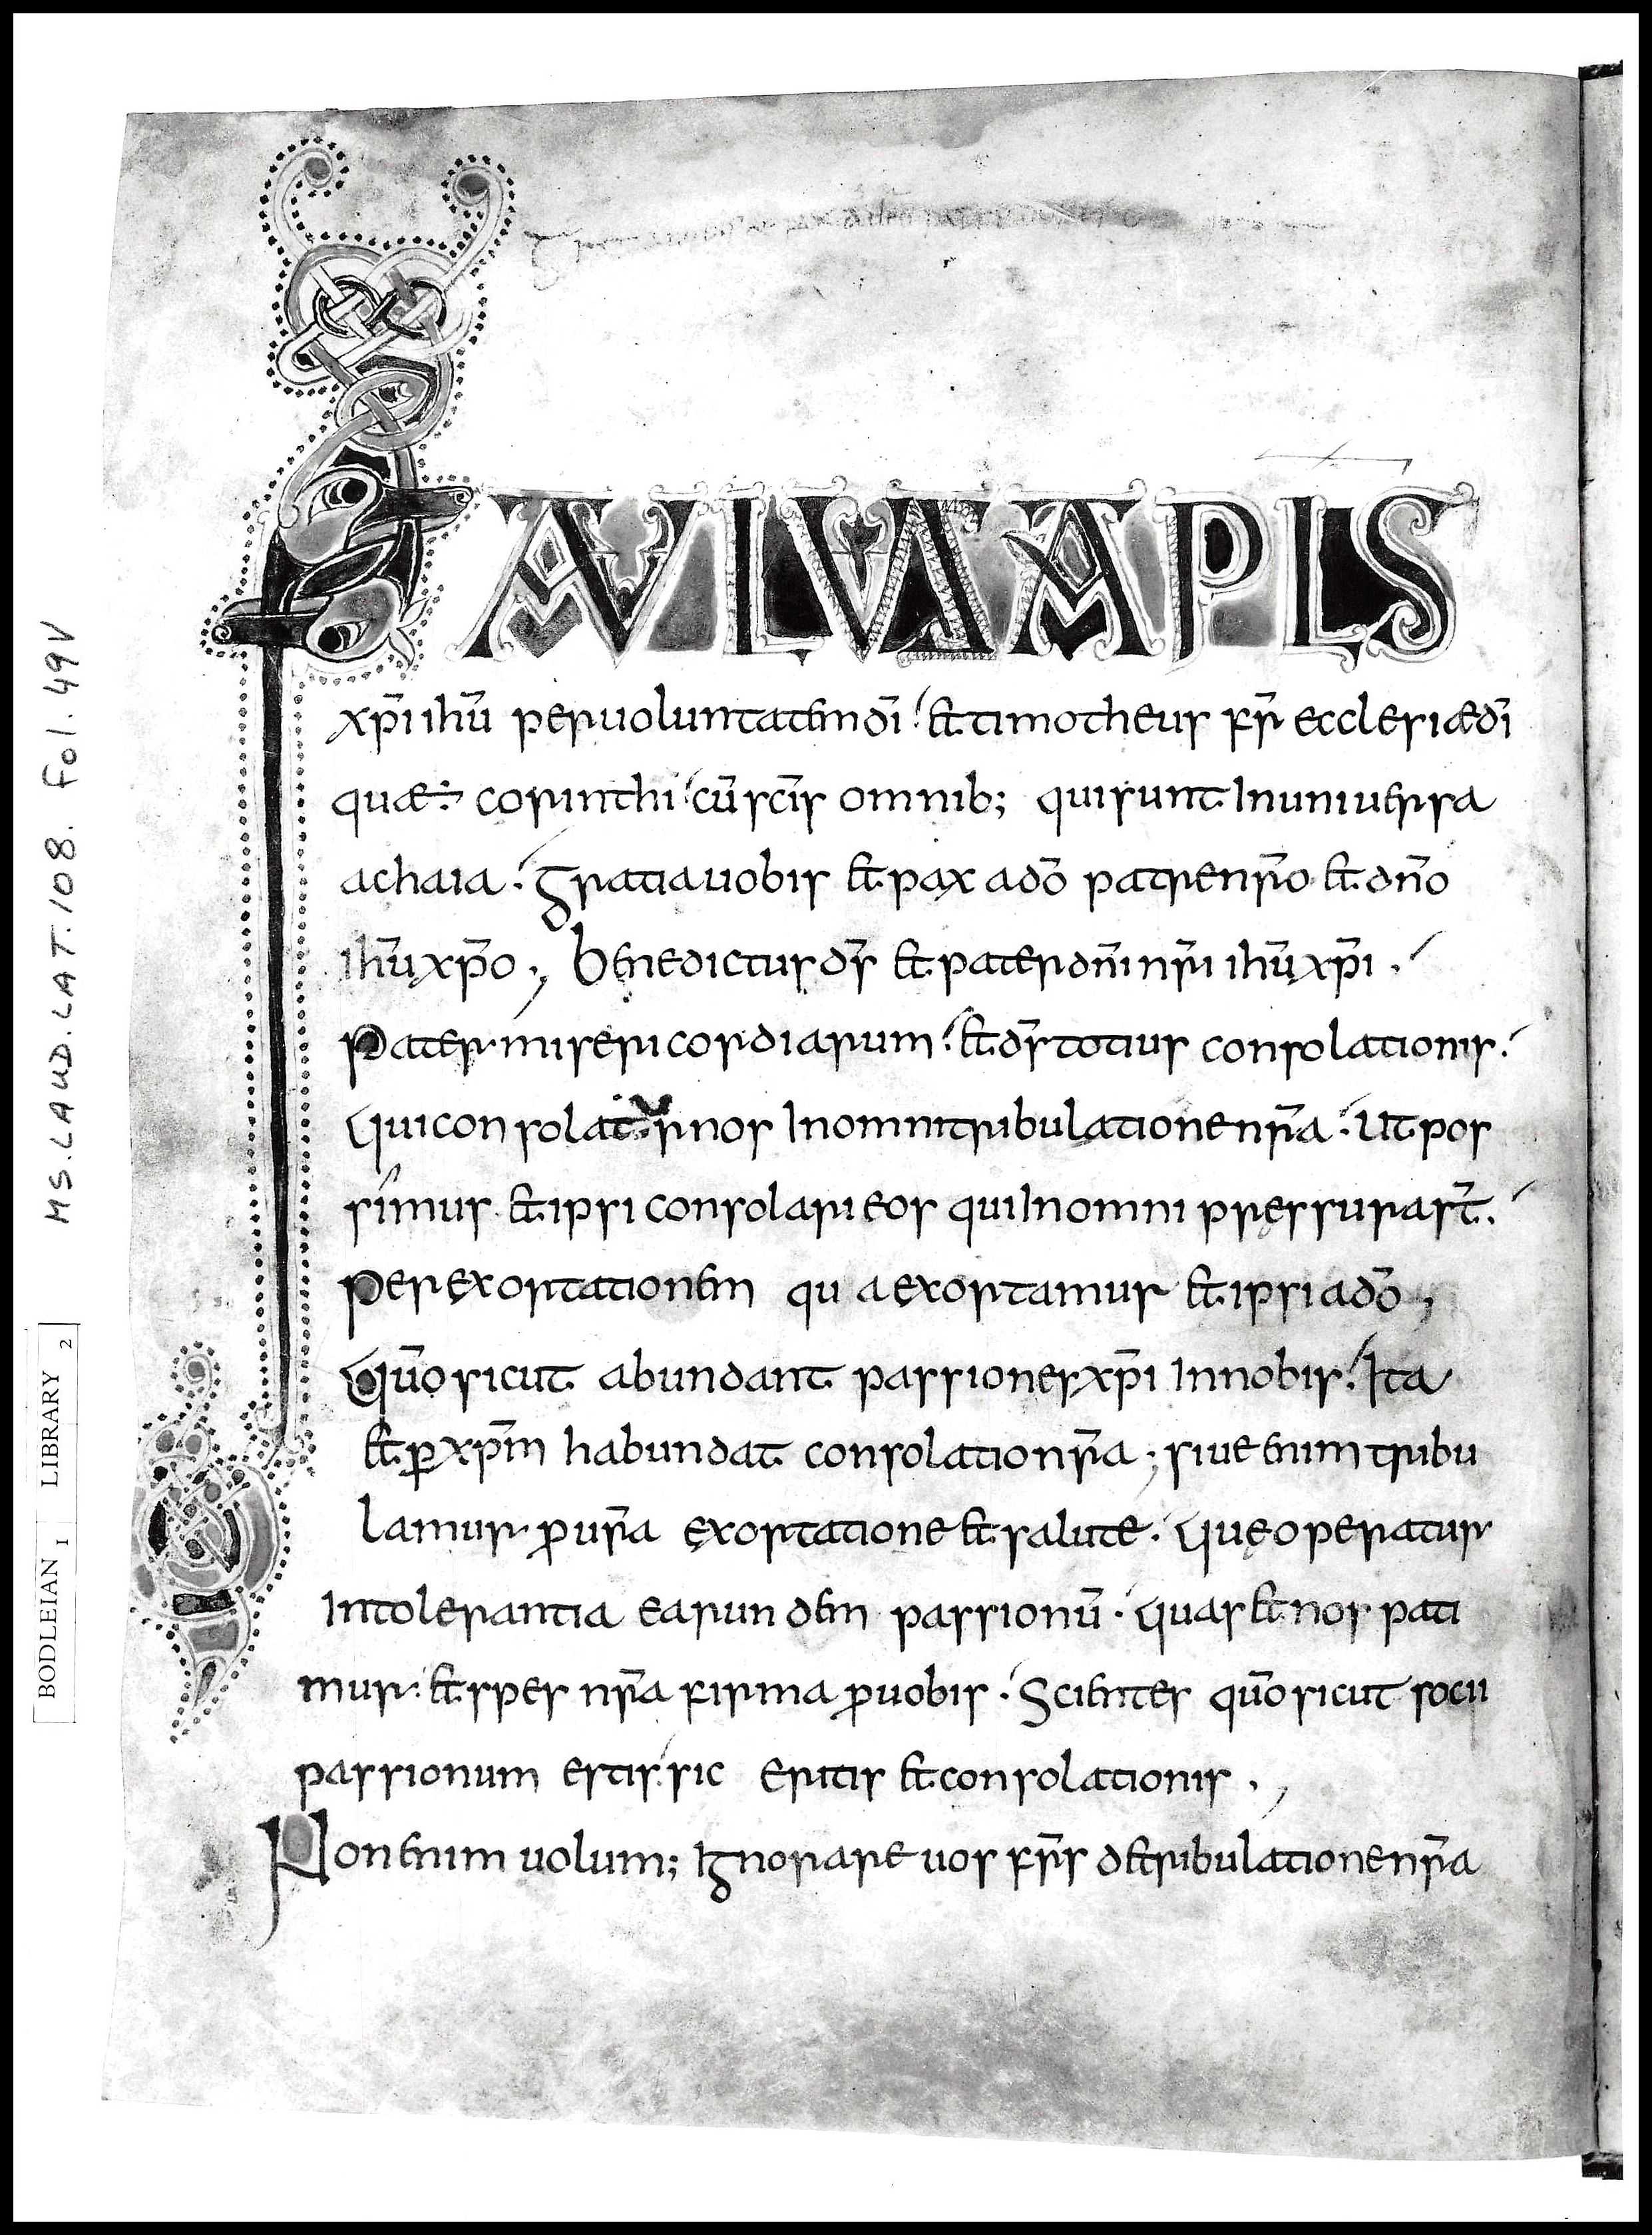 PAULUS APLS
xp̄i ihū per uoluntatem dī. Et timotheus fr̄ ecclesiæ dī
quæ ÷ corinthi. cū scīs omnib; qui sunt In uniuersa
achaia. Gratia uobis et pax a dō patre nr̄o et dn̄o
ihū xp̄o., Benedictus ds̄ et pater dn̄i nr̄i ihū xp̄i.
Pater misericordiarum. et ds̄ totius consolationis.
Qui consolatur nos In omni tribulatione nr̄a. Ut pos
simus et ipsi consolari eos qui In omni pręssura st̄.
Per exortationem qua exortamur et ipsi a dō,
Qūo sicut abundant passiones xp̄i In nobis. Ita
et p̲ xp̄m habundat consolatio nr̄a; siue enim tribu
lamur p̲ ur̄a exortatione et salute. Quę operatur
In tolerantia earundem passionū. Quas et nos pati
mur. et spes nr̄a firma p̲ uobis. Scientes qūo sicut socii
passionum estis. sic eritis et consolationis.,
Non enim uolum; Ignorare uos fr̄s de tribulatione nr̄a
MS. LAUD. LAT. 108. Fol. 49V
BODLEIAN 1 LIBRARY 2